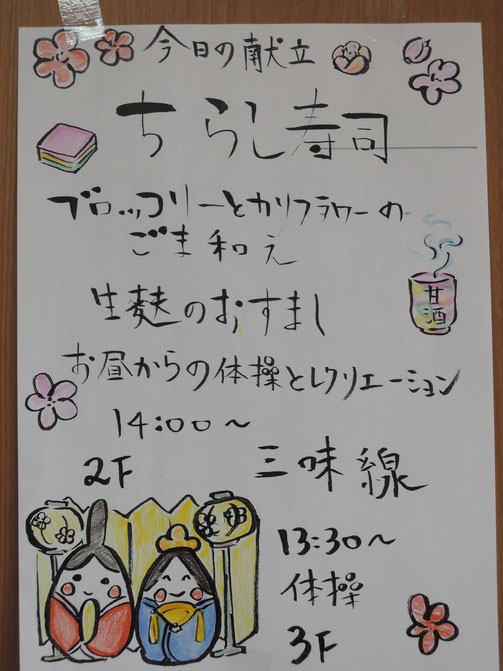 今日の献立
ちらし寿司
ブロッコリーとカリフラワーの
ごま和え
甘酒
生麩のおすまし
お昼からの体操とレクリエーション
14:00〜
2F 三味線
13:30〜
体操
3F